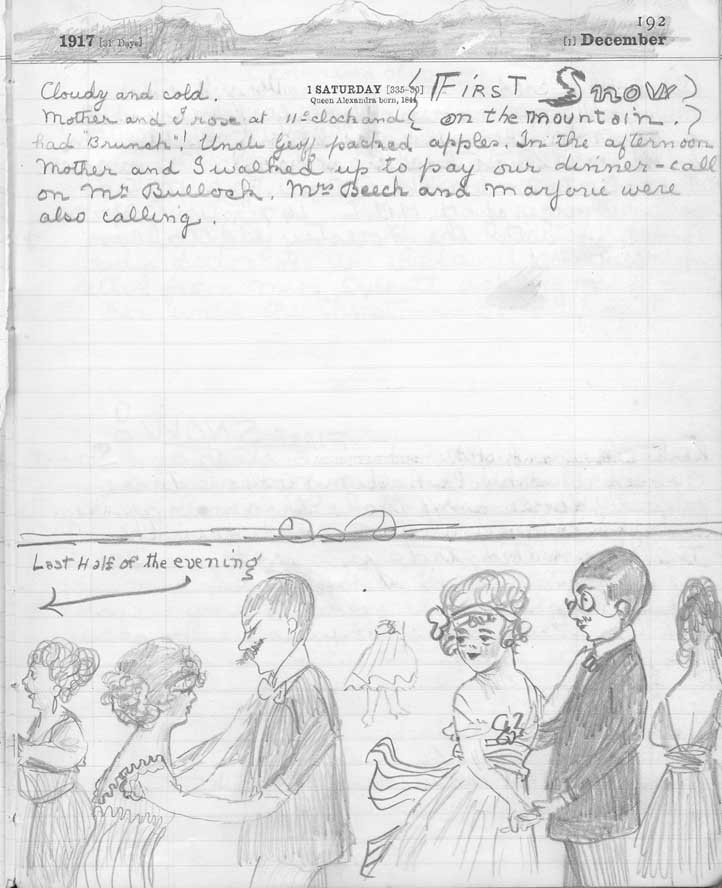 192
1917 [31 Days] [1] December
1 SATURDAY [335-30]
Queen Alexandra born, 1844
First Snow
on the mountain.
Cloudy and cold.
Mother and I rose at 11 o'clock and
had "Brunch"! Uncle Geoff packed apples. In the afternoon
Mother and I walked up to pay our dinner-call
on Mr Bullock. Mrs Beech and Marjorie were
also calling.
Last Half of the evening